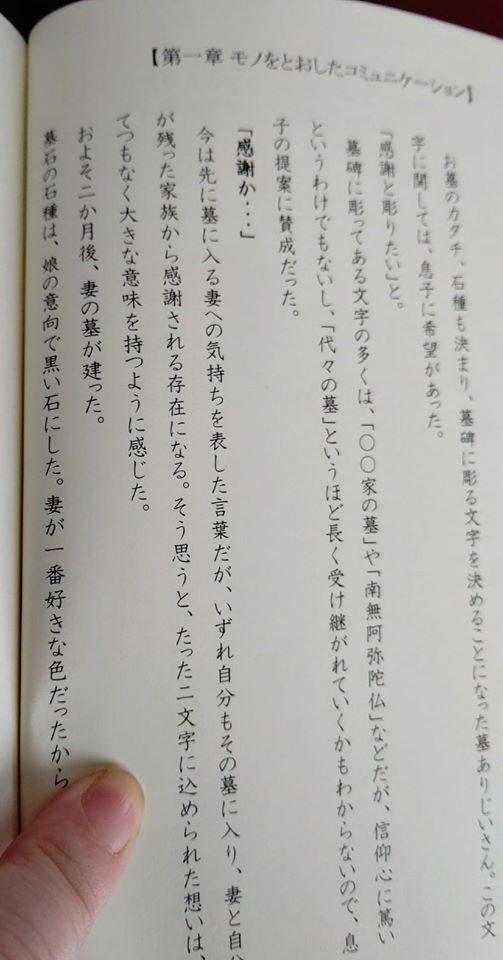 【第一章 モノをとおしたコミュニケーション】
お墓のカタチ、石種も決まり、墓碑に彫る文字を決めることになった墓ありじいさん。この文
字に関しては、息子に希望があった。
「感謝と彫りたい」と。
墓碑に彫ってある文字の多くは、「〇〇家の墓」や「南無阿弥陀仏」などだが、信仰心に篤い
というわけでもないし、「代々の墓」というほど長く受け継がれていくかもわからないので、息
子の提案に賛成だった。
「感謝か・・・」
今は先に墓に入る妻への気持ちを表した言葉だが、いずれ自分もその墓に入り、妻と自分
が残った家族から感謝される存在になる。そう思うと、たった二文字に込められた想いは、
てつもなく大きな意味を持つように感じた。
およそ二か月後、妻の墓が建った。
墓石の石種は、娘の意向で黒い石にした。妻が一番好きな色だったから